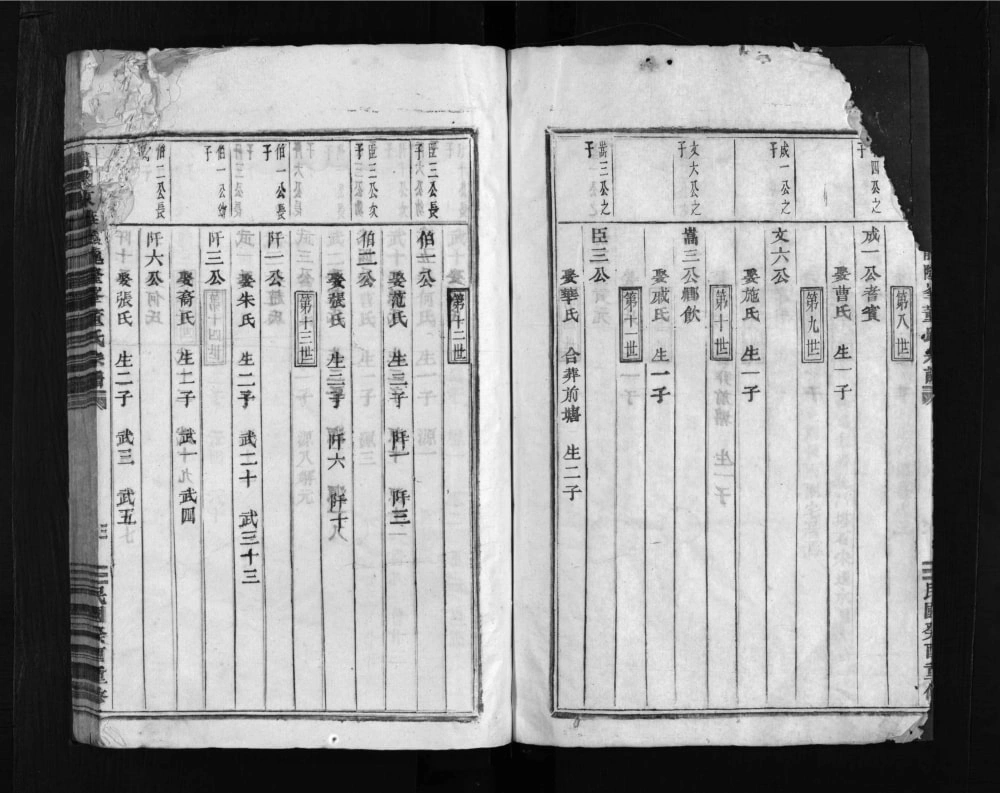 第八世
四公之
子
成一公者賓
娶曹氏 生一子
第九世
成一公之
子
文六公
娶施氏 生一子
第十世
文大公之
子
嵩三公鄉飲
娶戚氏 生一子
第十一世
嵩三公之
子
臣三公
娶華氏 合葬前塘 生二子
第十二世
臣三公長
子
伯一公
娶范氏 生二子 阡一 阡三
臣三公次
子
伯二公
娶張氏 生二子 阡六 阡十
第十三世
伯一公長
子
阡一公
娶朱氏 生二子 武二十 武三十三
伯一公幼
子
阡三公
娶裔氏 生二子 武十九 武四
伯二公長
子
阡六公
娶張氏 生二子 武三 武五
三
民國癸酉重修